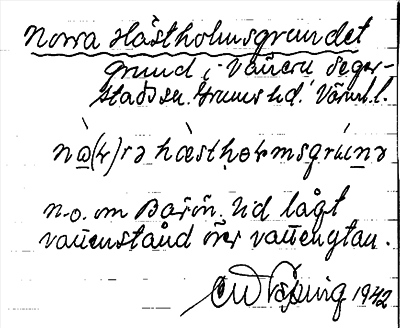 Norra Hästholmsgrundet
grund i Vänern Seger-
stads sn. Grums hd. Värml. l.
nà̱(r)rə hàsthọḷmsgrúnə
n.o. om Barön. Vid lågt
vattenstånd över vattenytan.
1942